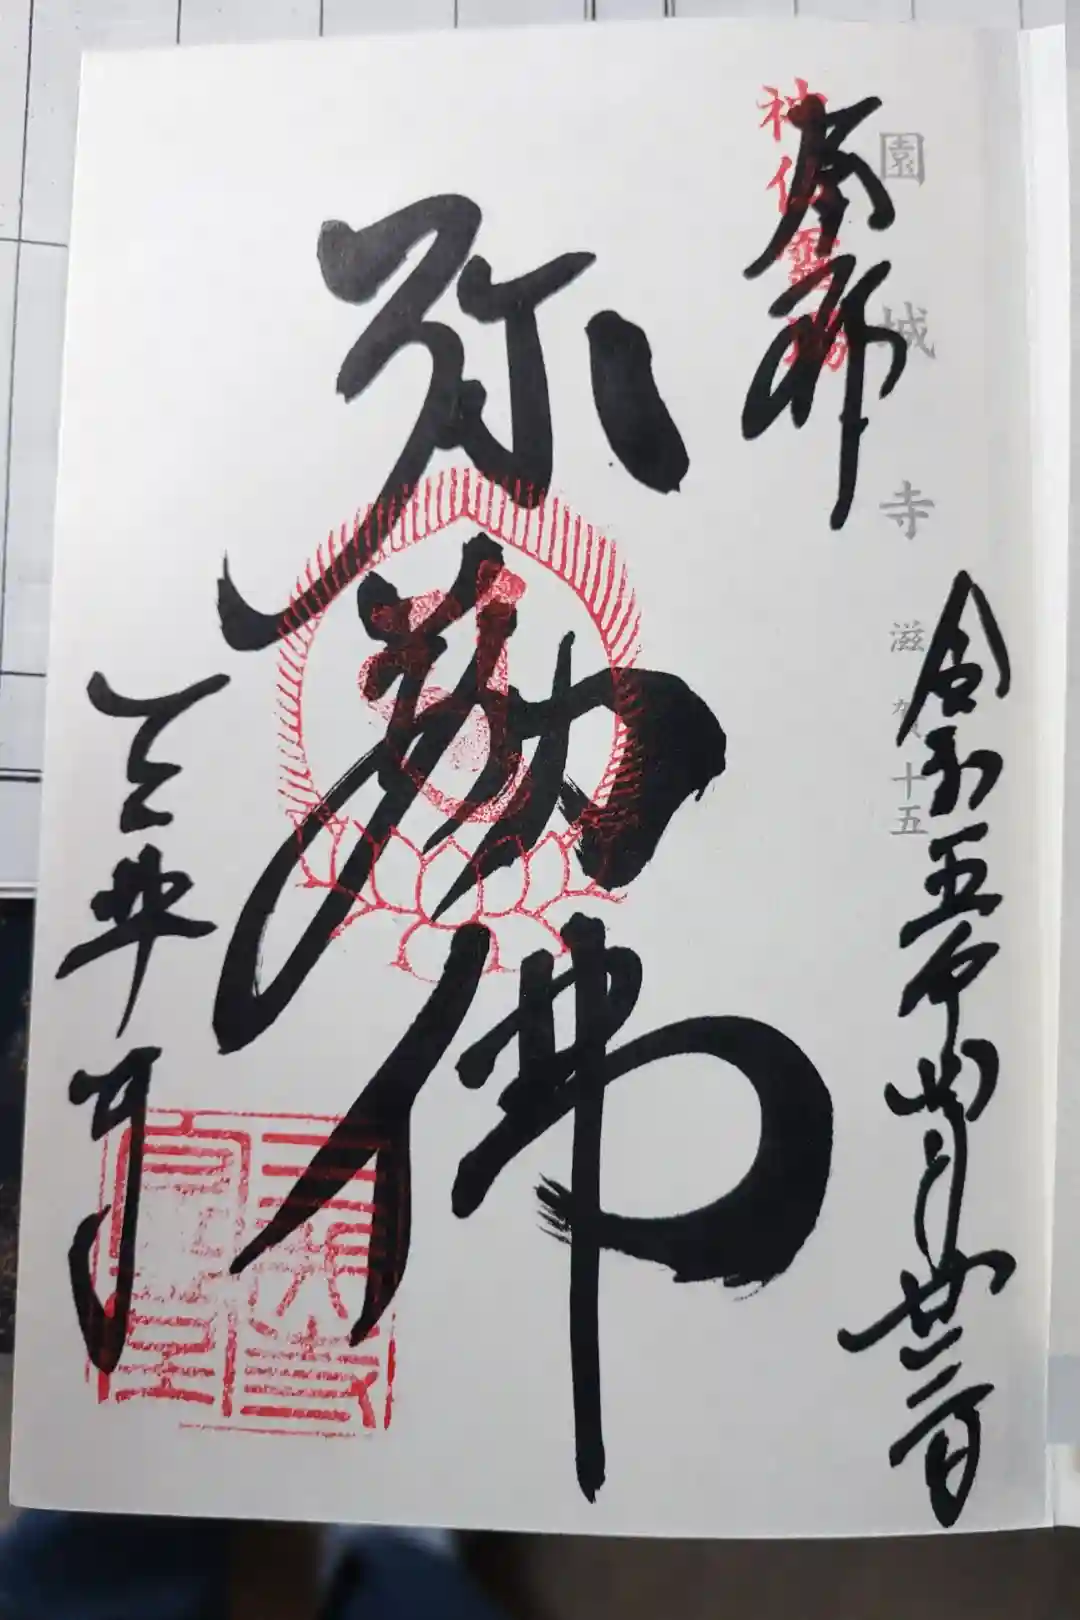 園城寺 滋賀十五
神仏霊場
奉拝
令和五年四月廿日
弥勒佛
三井寺